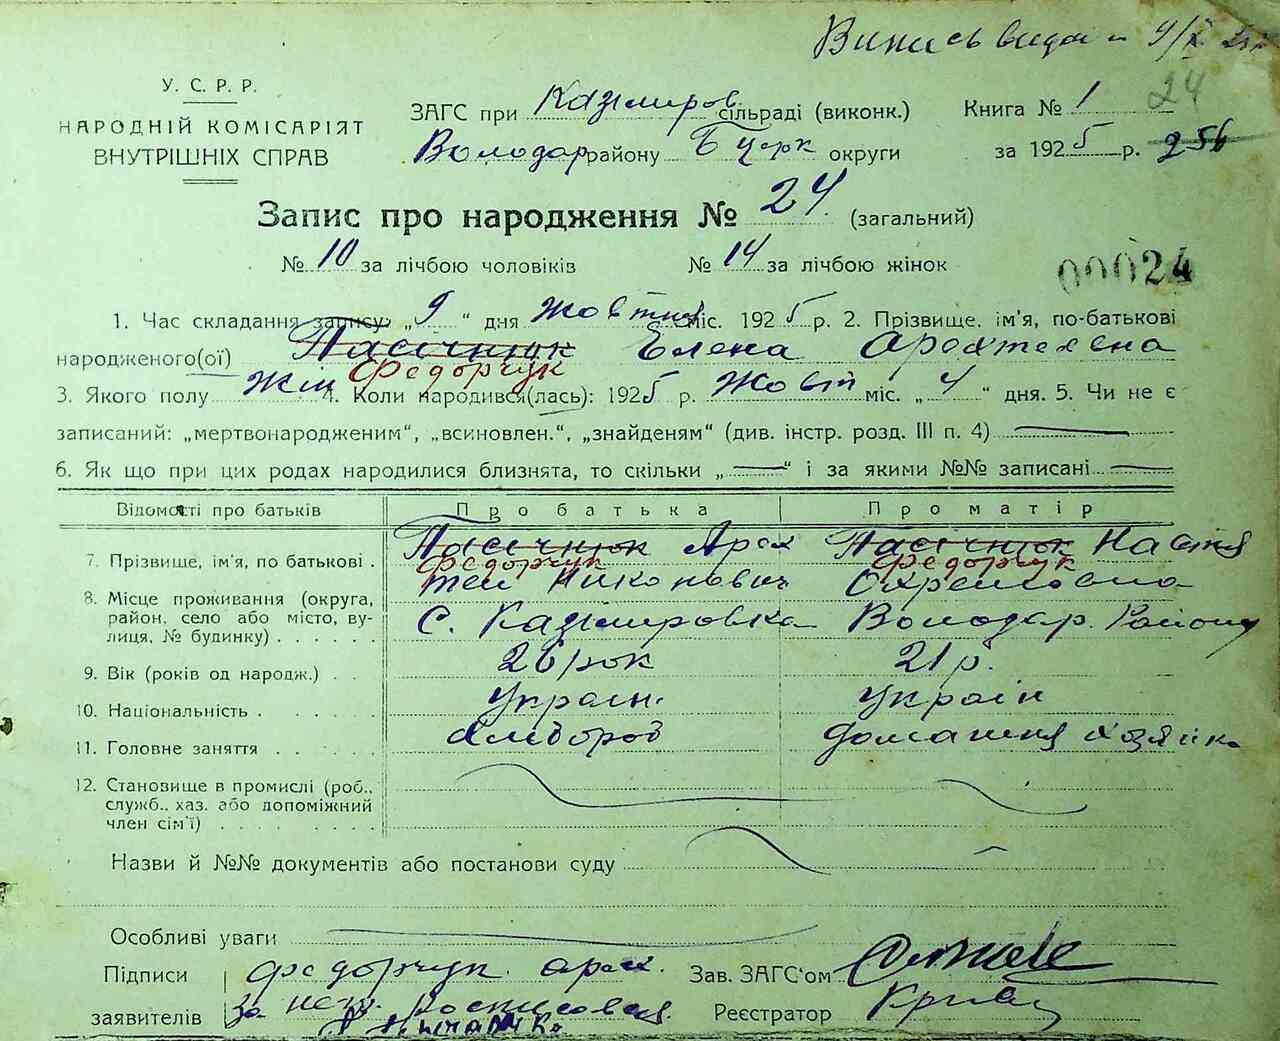 Випись видан 9/X
У. С. Р. Р.
НАРОДНІЙ КОМІСАРІЯТ
ВНУТРІШНІХ СПРАВ
ЗАГС при Казміров сільраді (виконк.) Книга № 1 24
Володар району Б церк округи за 1925 р. 256
Запис про народження № 24 (загальний)
№ 10 за лічбою чоловіків № 14 за лічбою жінок
00024
1. Час складання запису: „ 9 “ дня Жовтня міс. 1925 р. 2. Прізвище, ім'я, по-батькові
народженого(ої) Пасічнюк Елена
Федорчук
3. Якого полу Жін 4. Коли народився(лась): 1925 р. Жовт міс. „ 4 “ дня. 5. Чи не є
записаний: „мертвонародженим“, „всиновлен.“, „знайденям“ (див. інстр. розд. III п. 4)
6. Як що при цих родах народилися близнята, то скільки „ “ і за якими №№ записані
Відомості про батьків Про батька Про матір
7. Прізвище, ім'я, по батькові . Пасічнюк Арех Пасічнюк Настя
Федорчук Федорчук
теи Никонович Охремовна
8. Місце проживання (округа, район, село або місто, вулиця, № будинку) . . . . . . С. Казміровка Володар. Району
9. Вік (років од народж.) . . 26 рок 21 р.
10. Національність . . . . . . Україн. Україн
11. Головне заняття . . . . . Хлібороб домашня хозяйка
12. Становище в промислі (роб., служб., хаз. або допоміжний член сім'ї) . . . . . . . . .
Назви й №№ документів або постанови суду
Особливі уваги
Підписи заявителів Федорчук Арех.
за неук. росписовся
Зав. ЗАГС'ом
Реєстратор